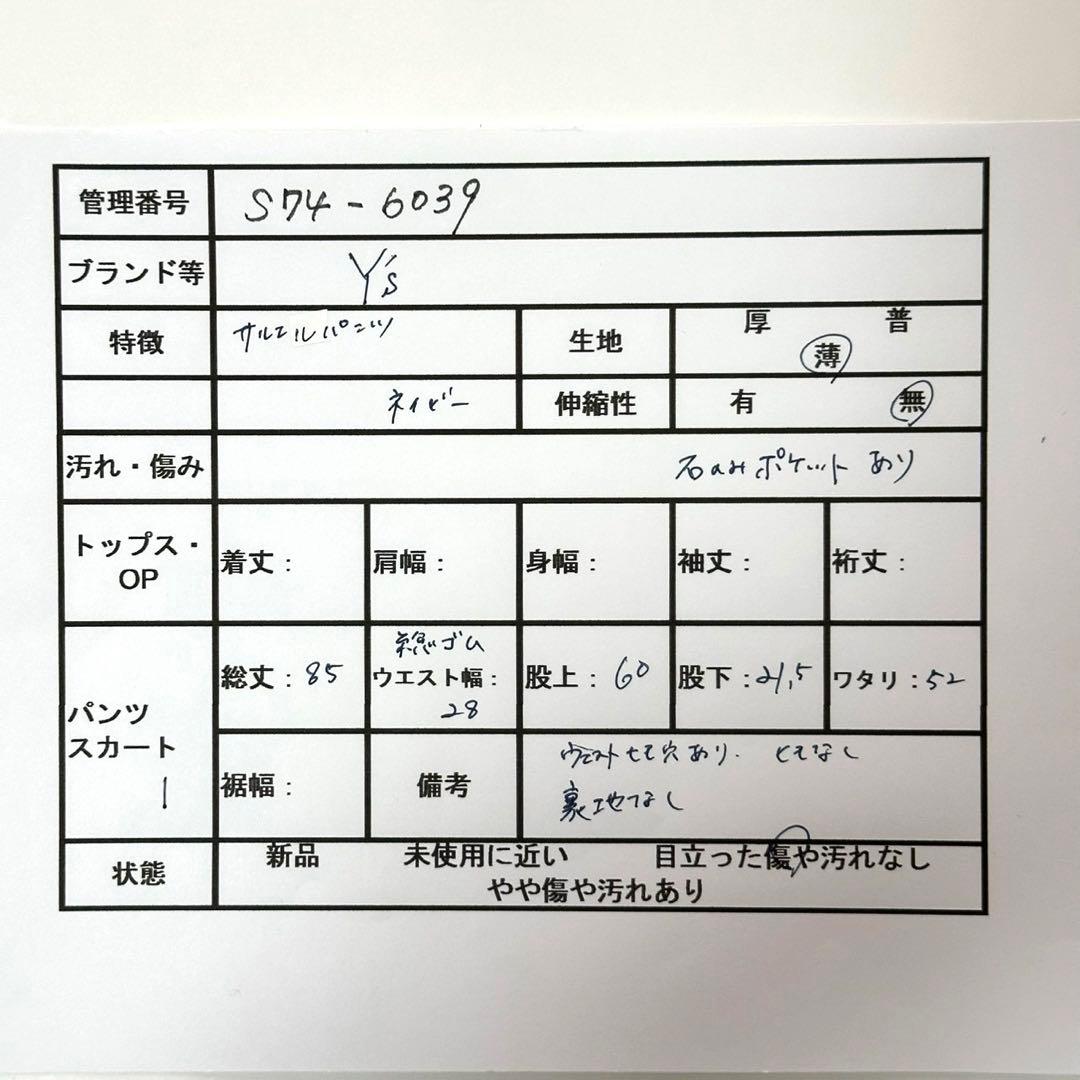 管理番号 S74-6039
ブランド等 Y's
特徴 サルエルパンツ 生地 厚 普 薄
ネイビー 伸縮性 有 無
汚れ・傷み 右のみポケットあり
トップス・OP 着丈： 肩幅： 身幅： 袖丈： 裄丈：
パンツ スカート 1 総丈：85 総ゴム ウエスト幅：28 股上：60 股下：21,5 ワタリ：52
裾幅： 備考 ウエストヒモ穴あり. ヒモなし
裏地なし
状態 新品 未使用に近い 目立った傷や汚れなし
やや傷や汚れあり